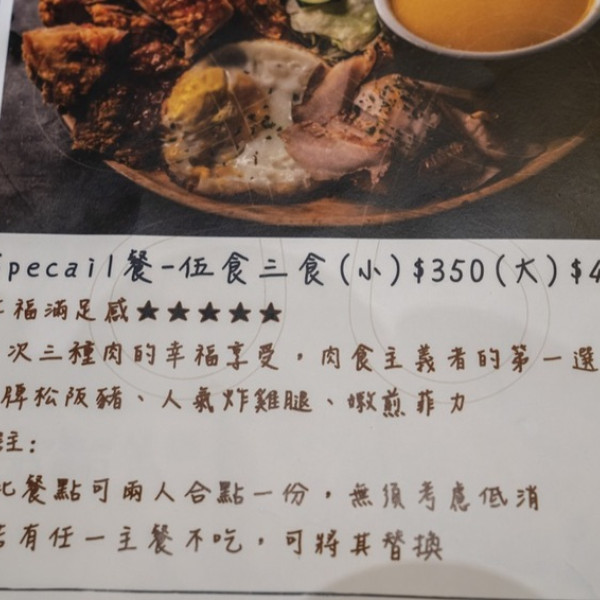 Specail餐-伍食三食(小)$350(大)$4
幸福滿足感★★★★★
次三種肉的幸福享受，肉食主義者的第一選
牌松阪豬、人氣炸雞腿、嫩煎菲力
註:
此餐點可兩人合點一份，無須考慮低消
若有任一主餐不吃，可將其替換